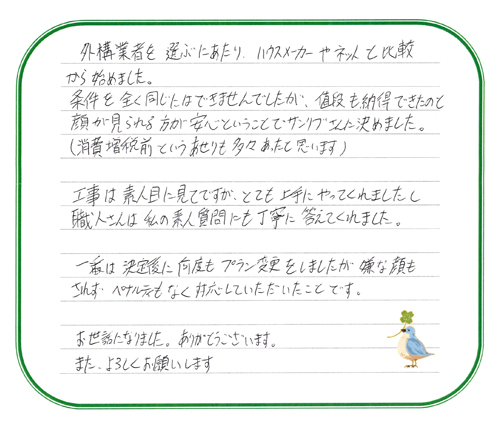 外構業者を選ぶにあたり、ハウスメーカーやネットと比較
から始めました。
条件を全く同じにはできませんでしたが、値段も納得できたのと
顔が見られる方が安心ということでサンリブさんに決めました。
(消費増税前というあせりも多々あったと思います)
工事は素人目に見てですが、とても上手にやってくれましたし
職人さんは私の素人質問にも丁寧に答えてくれました。
一番は決定後に何度もプラン変更をしましたが嫌な顔も
されず ペナルティもなく対応していただいたことです。
お世話になりました。ありがとうございます。
また、よろしくお願いします